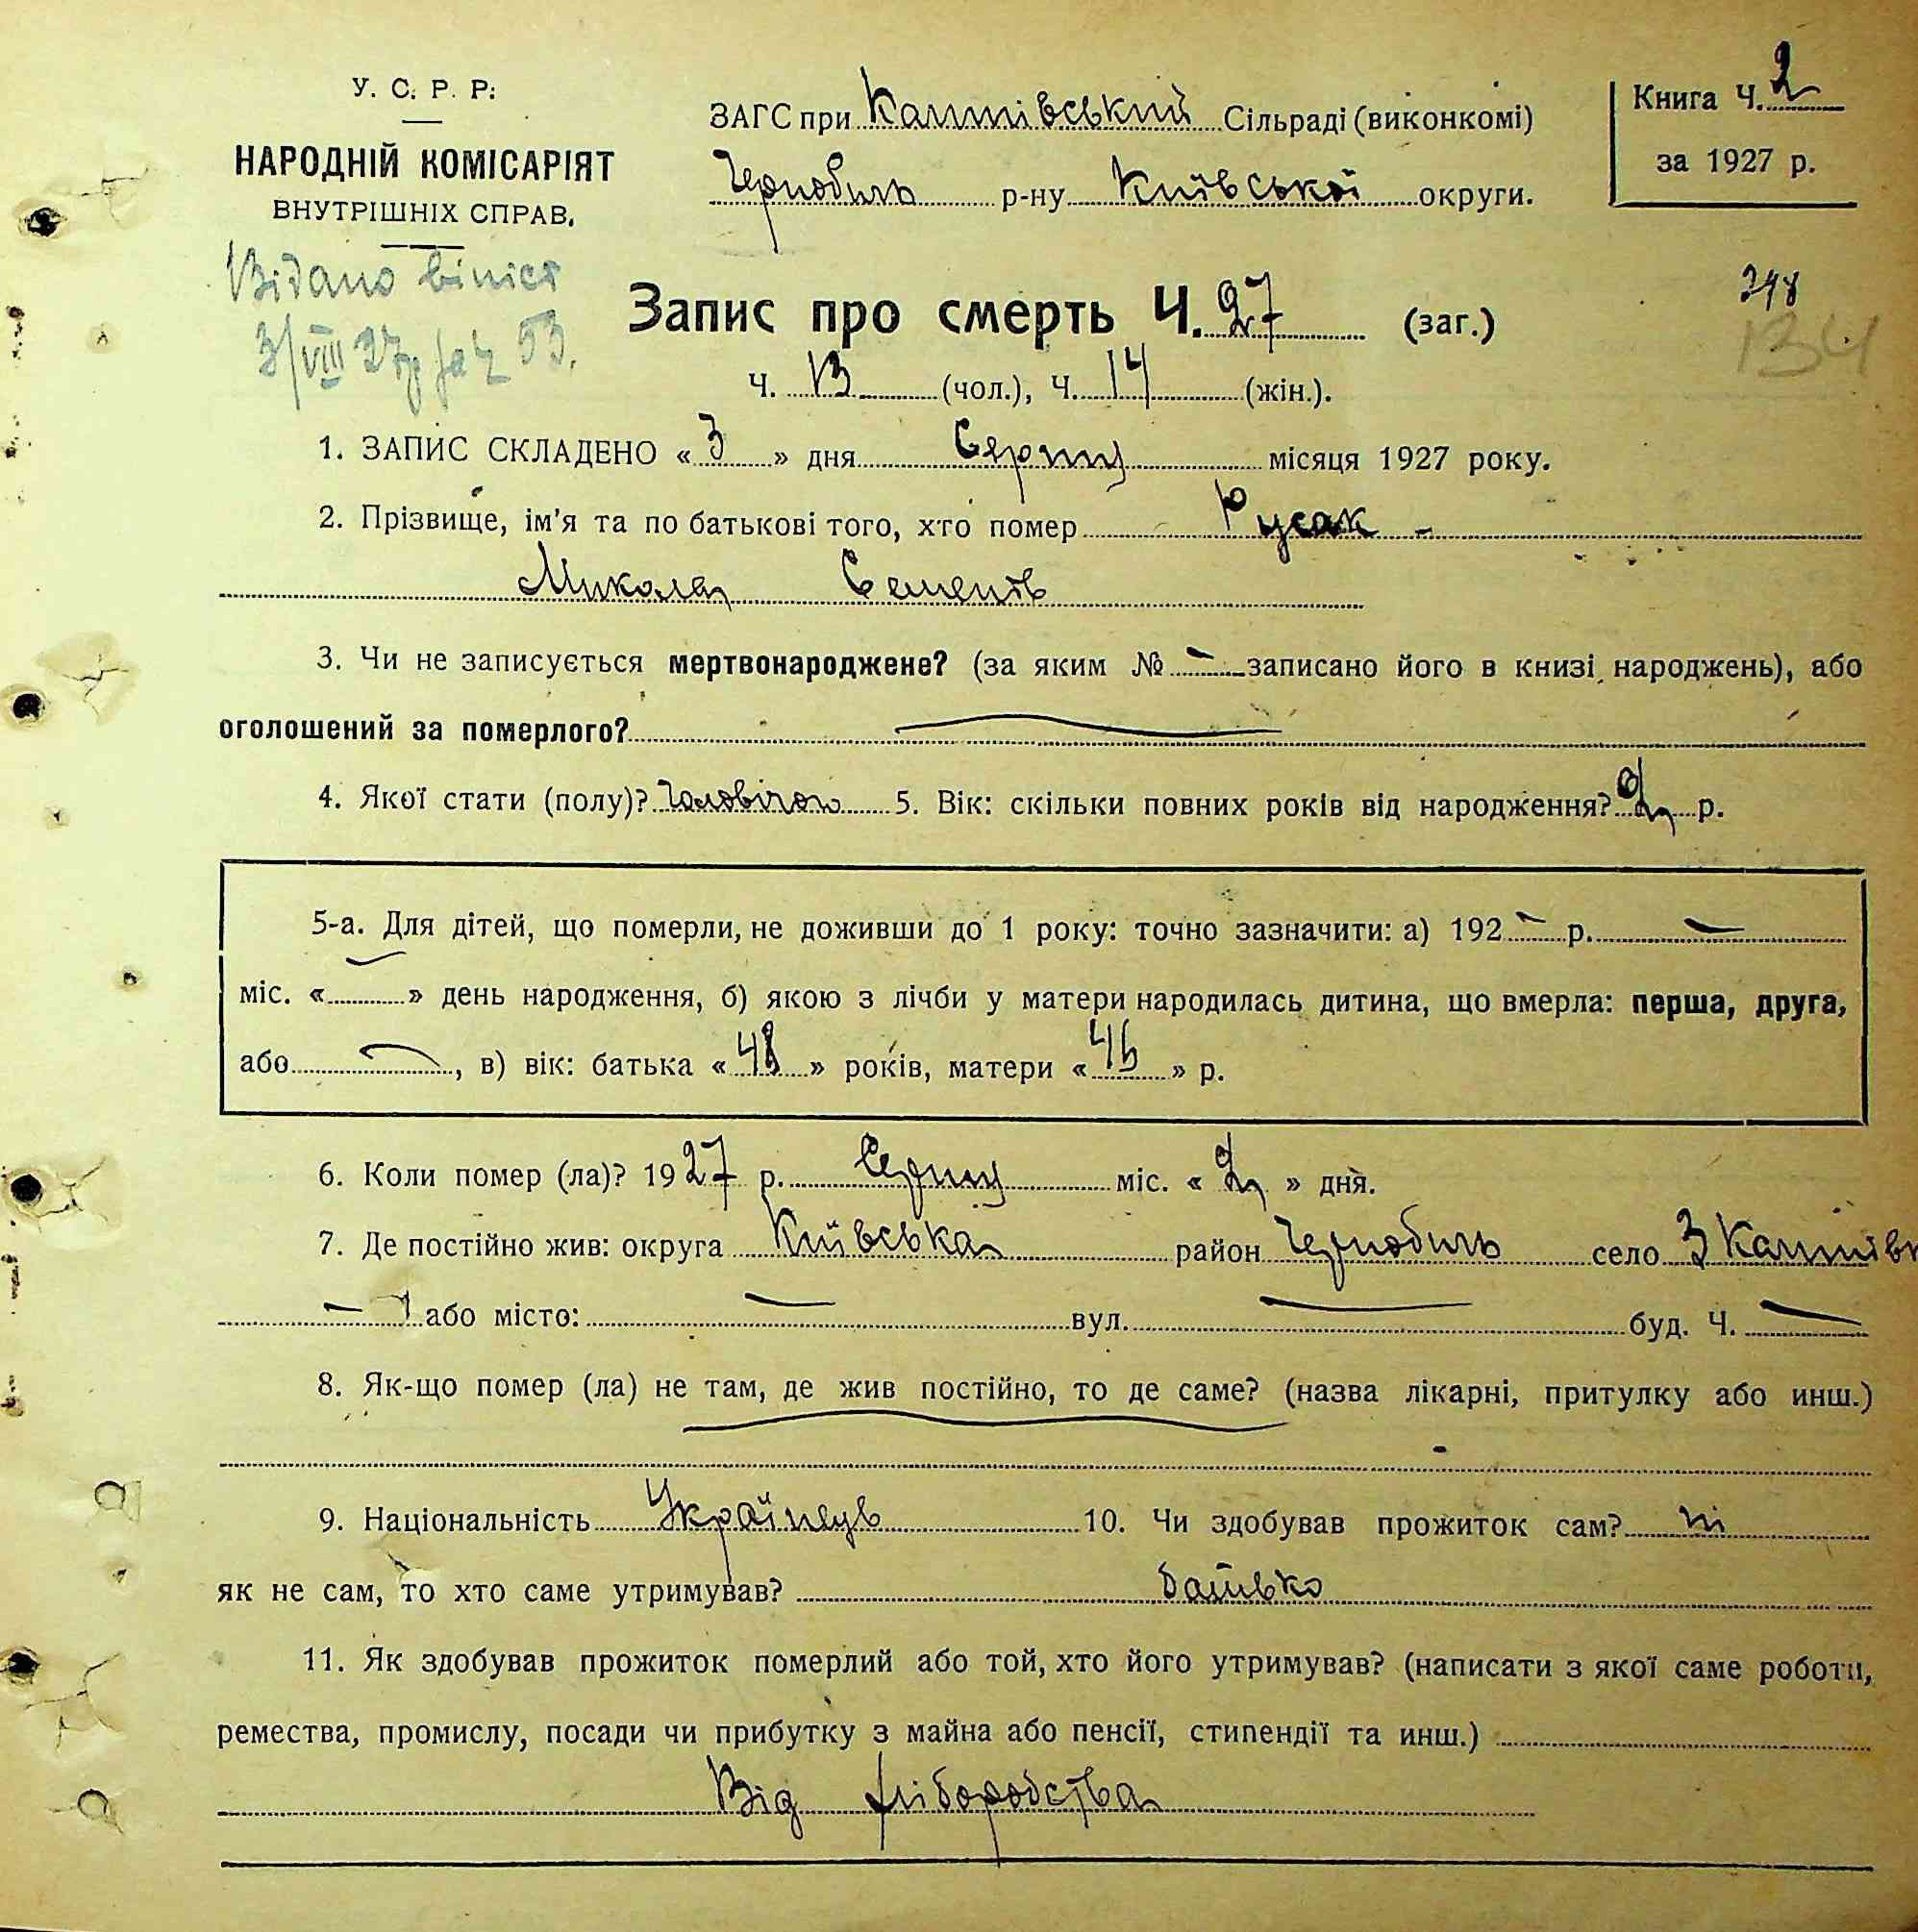 У. С. Р. Р.
НАРОДНІЙ КОМІСАРІЯТ
ВНУТРІШНІХ СПРАВ.
Видано
3/VIII 27р за № 53.
ЗАГС при Капшівський Сільраді (виконкомі)
Чернобиль р-ну Київської округи.
Книга Ч. 2
за 1927 р.
Запис про смерть Ч. 27 (заг.)
348
134
Ч. 13 (чол.), Ч. 14 (жін.).
1. ЗАПИС СКЛАДЕНО « 3 » дня Серпня місяця 1927 року.
2. Прізвище, ім'я та по батькові того, хто помер Русак -
Микола Семенів
3. Чи не записується мертвонароджене? (за яким № — записано його в книзі народжень), або
оголошений за померлого? —
4. Якої стати (полу)? Чоловічої 5. Вік: скільки повних років від народження? 2 р.
5-а. Для дітей, що померли, не доживши до 1 року: точно зазначити: а) 192 — р. —
міс. « — » день народження, б) якою з лічби у матери народилась дитина, що вмерла: перша, друга,
або —, в) вік: батька « 48 » років, матери « 46 » р.
6. Коли помер (ла)? 1927 р. Серпня міс. « 2 » дня.
7. Де постійно жив: округа Київська район Чернобиль село
— або місто: — вул. — буд. Ч. —
8. Як-що помер (ла) не там, де жив постійно, то де саме? (назва лікарні, притулку або инш.)
9. Національність Українець 10. Чи здобував прожиток сам? ні
як не сам, то хто саме утримував? батько
11. Як здобував прожиток померлий або той, хто його утримував? (написати з якої саме роботи,
ремества, промислу, посади чи прибутку з майна або пенсії, стипендії та инш.)
Від хліборобства